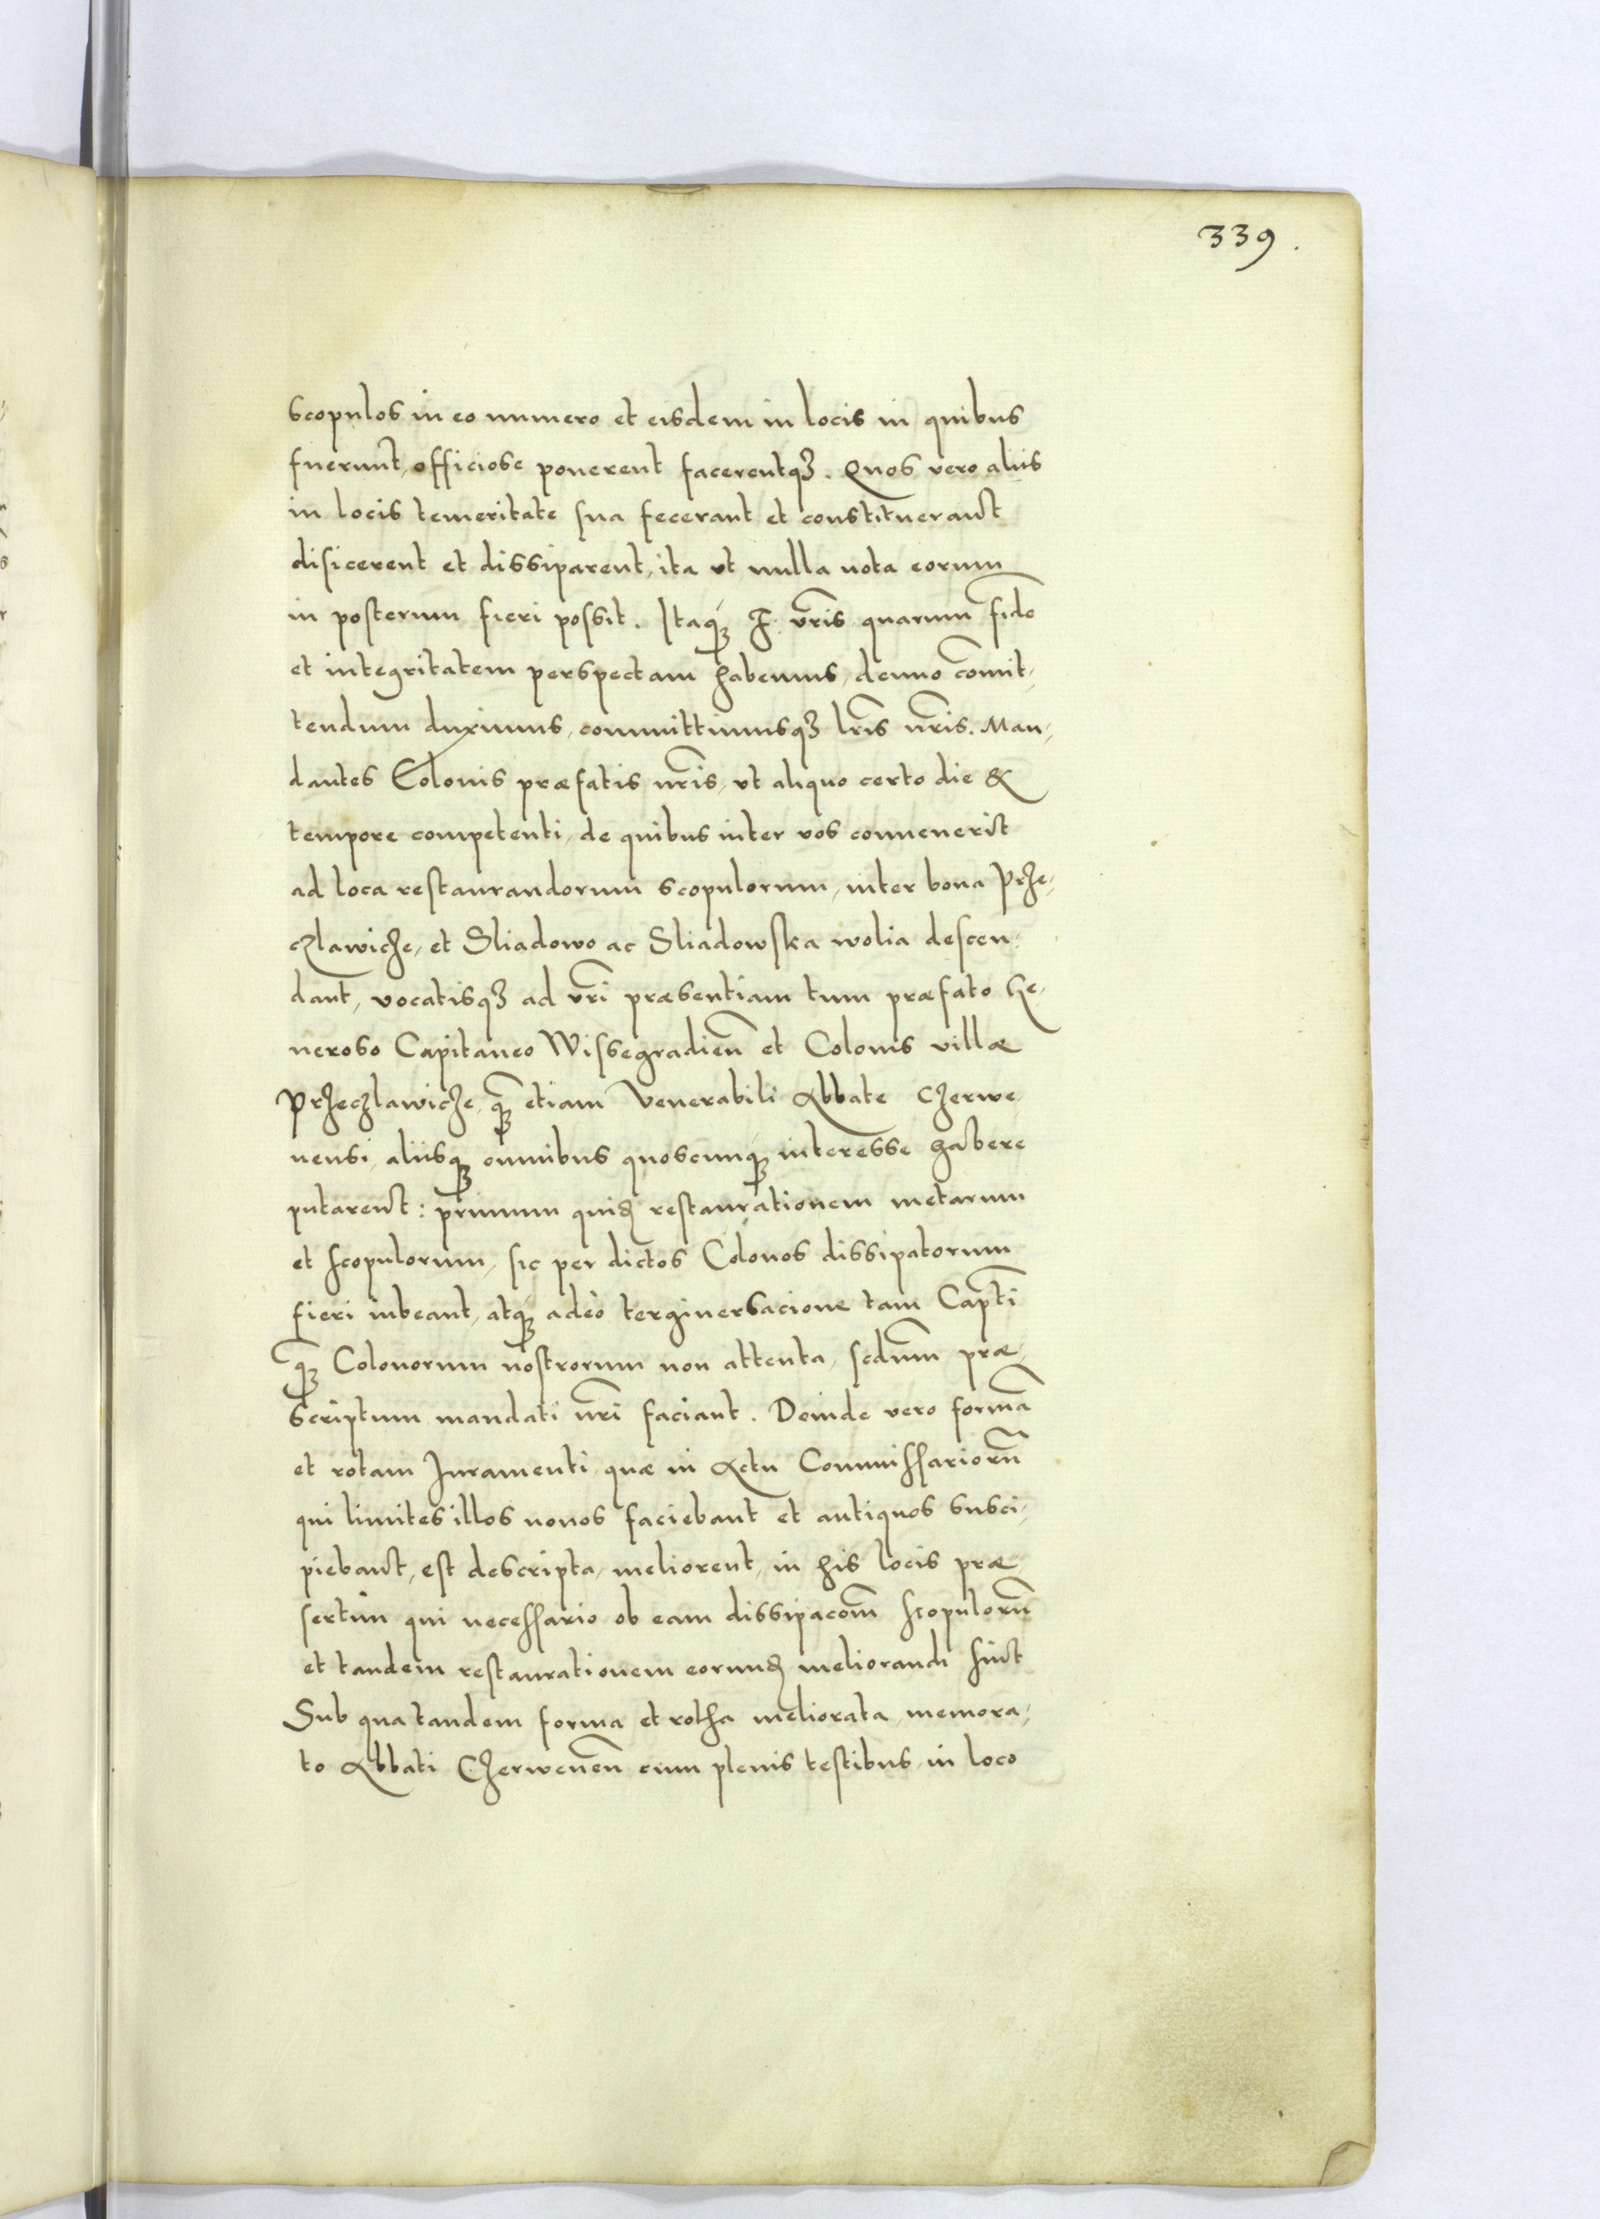 339.
scopulos in eo numero et eisdem in locis in quibus
fuerunt, officiose ponerent facerentqȝ. Quos vero aliis
in locis temeritate sua fecerant et constituerant
disicerent et dissiparent, ita vt nulla nota eorum
in posterum fieri possit. Itaqȝ F. vr̃is quarum fidẽ
et integritatem perspectam habemus, denuo com̃it-
tendum duximus, committimusqȝ lr̃is nr̃is. Man-
dantes Colonis præfatis nr̃is, vt aliquo certo die &
tempore competenti, de quibus inter vos conuenerit
ad loca restaurandorum scopulorum, inter bona Prze-
czlawicze, et Sliadowo ac Sliadowska wolia descen-
dant, vocatisqȝ ad vr̃i præsentiam tum præfato Ge-
neroso Capitaneo Wissegradieñ et Colonis villæ
Przeczlawicze, qȝ̃ etiam Venerabili Abbate Czerwe-
nensi, aliisqȝ omnibus quoscunqȝ interesse habere
putarent: primum quidẽ restaurationem metarum
et scopulorum, sic per dictos Colonos dissipatorum
fieri iubeant, atqȝ adeò terginersacione tam Capt̃i
qȝ̃ Colonorum nostrorum non attenta, scdum̃ præ-
scriptum mandati nr̃i faciant. Deinde vero formã
et rotam Juramenti quæ in Actu Commissariorũ
qui limites illos nouos faciebant et antiquos susci-
piebant, est descripta, meliorent, in his locis præ
sertim qui necessario ob eam dissipacom̃ scopulorũ
et tandem restaurationem eorundẽ meliorandi sint
Sub qua tandem forma et rotha meliorata, memora-
to Abbati Czerweneñ cum plenis testibus, in loco